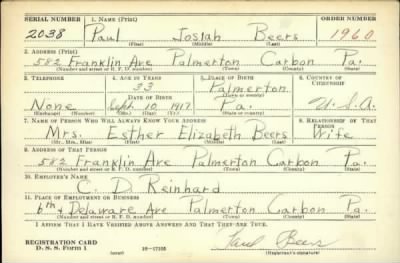 SERIAL NUMBER 1. NAME (Print) ORDER NUMBER
2038 Paul Josiah Beers 1960
(First) (Middle) (Last)
2. ADDRESS (Print)
582 Franklin Ave Palmerton Carbon Pa.
(Number and street or R. F. D. number) (Town) (County) (State)
3. TELEPHONE 4. AGE IN YEARS 5. PLACE OF BIRTH 6. COUNTRY OF CITIZENSHIP
33 Palmerton
DATE OF BIRTH (Town or county)
None Sept. 10, 1917 Pa. U.S.A.
(Exchange) (Number) (Mo.) (Day) (Yr.) (State or country)
7. NAME OF PERSON WHO WILL ALWAYS KNOW YOUR ADDRESS 8. RELATIONSHIP OF THAT PERSON
Mrs. Esther Elizabeth Beers Wife
(Mr., Mrs., Miss) (First) (Middle) (Last)
9. ADDRESS OF THAT PERSON
582 Franklin Ave Palmerton Carbon Pa.
(Number and street or R. F. D. number) (Town) (County) (State)
10. EMPLOYER'S NAME
C. D. Reinhard
11. PLACE OF EMPLOYMENT OR BUSINESS
6th & Delaware Ave Palmerton Carbon Pa.
(Number and street or R. F. D. number) (Town) (County) (State)
I AFFIRM THAT I HAVE VERIFIED ABOVE ANSWERS AND THAT THEY ARE TRUE.
REGISTRATION CARD
D. S. S. Form 1 (over) 16—17105 Paul Beers
(Registrant's signature)